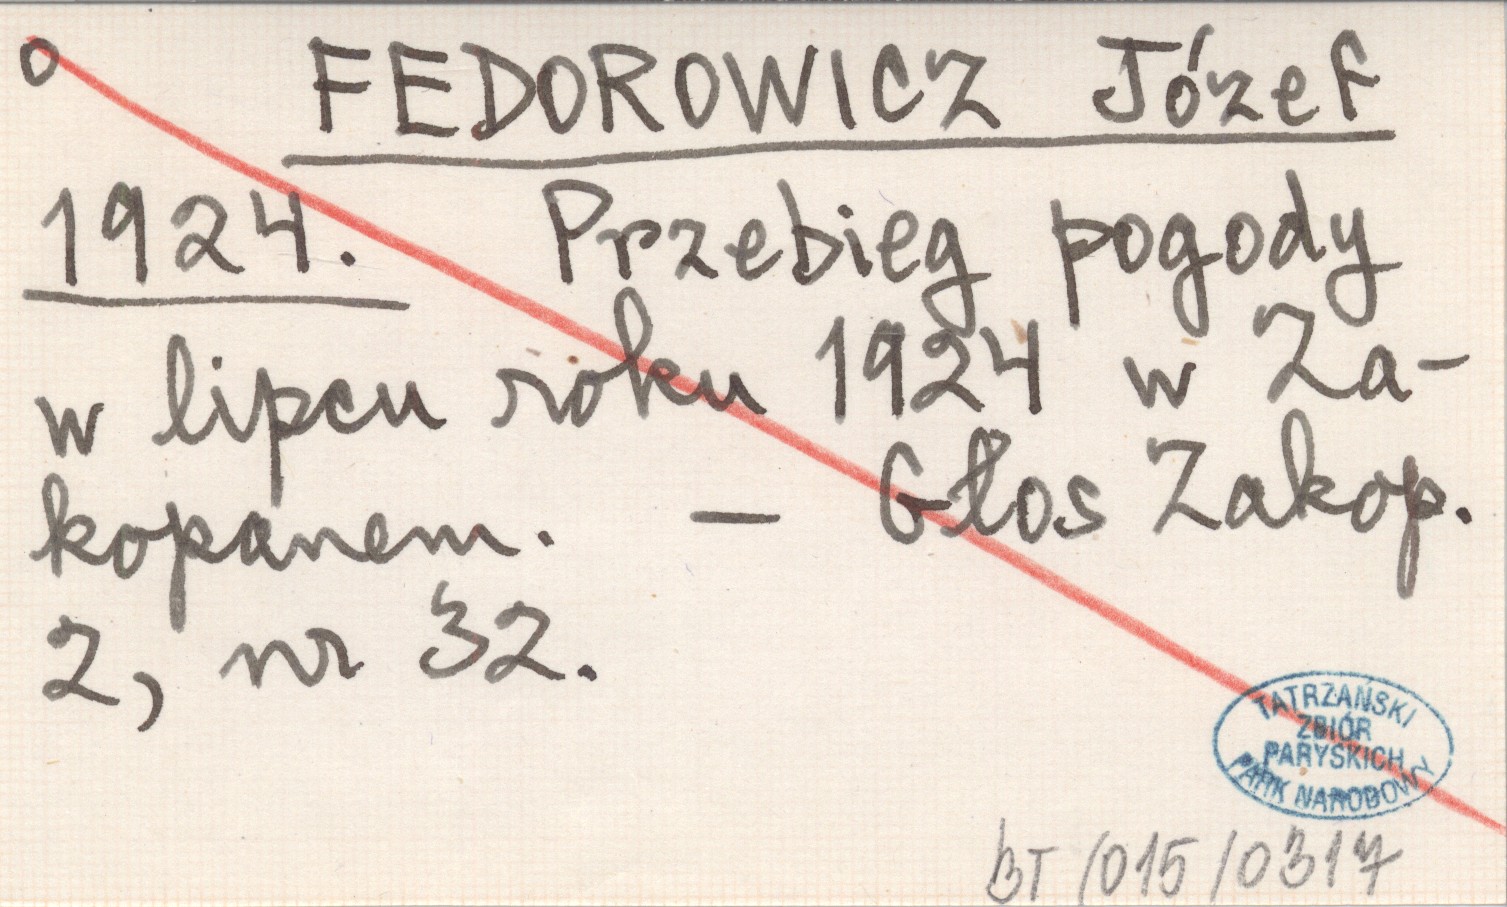 o FEDOROWICZ Józef
1924. Przebieg pogody
w lipcu roku 1924 w Za-
kopanem. — Głos Zakop.
2, nr 32.
TATRZAŃSKI
ZBIÓR
PARYSKICH
PARK NARODOWY
BT/015/0317